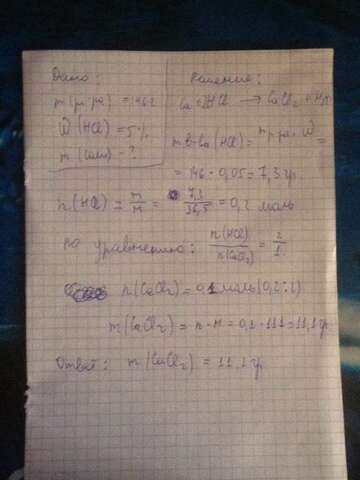 Дано:
m(р-ра) = 146г
W (HCl) = 5%
m (соли) - ?
Решение:
Ca + 2HCl → CaCl₂ + H₂↑
m в-ва (HCl) = m р-ра · W =
= 146 · 0,05 = 7,3 гр.
n (HCl) = m/M = 7,3/36,5 = 0,2 моль
по уравнению: n(HCl)/n(CaCl₂) = 2/1
n(CaCl₂) = 0,1 моль (0,2 : 2)
m(CaCl₂) = n · M = 0,1 · 111 = 11,1 гр
Ответ: m (CaCl₂) = 11,1 гр